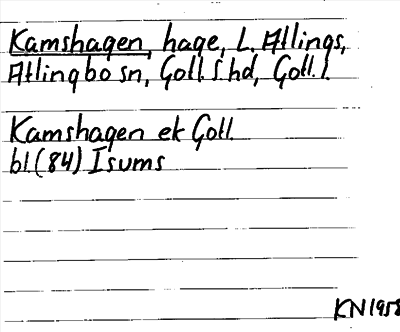 Kamshagen, hage, L. Atlings,
Atlingbo sn, Gotl. S hd, Gotl. l.
Kamshagen ek Gotl.
bl. (84) Isums
KN 1958